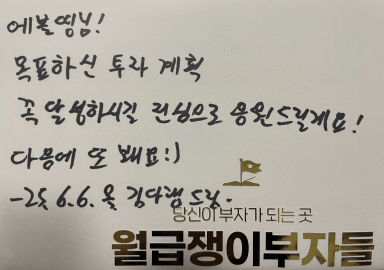 에볼띵님!
목표하신 투자 계획
꼭 달성하시길 진심으로 응원드릴게요!
다음에 또 봬요:)
-25. 6. 6. 올 김다램 드림-
당신이 부자가 되는 곳
월급쟁이부자들